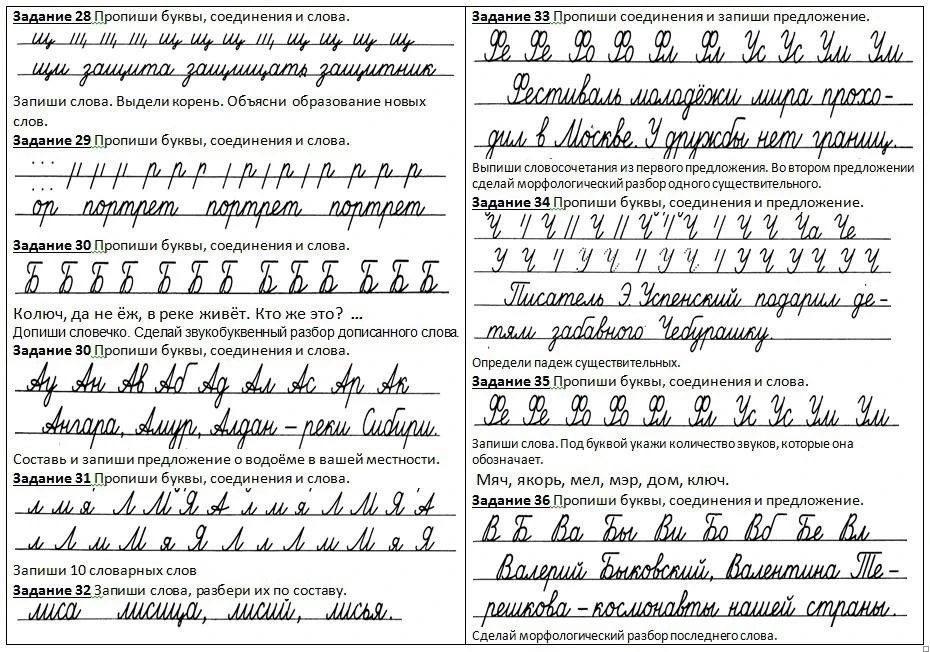 Задание 28 Пропиши буквы, соединения и слова.
щ щ щ щ щ щ щ щ щ щ щ щ
щи защита защищать защитник
Запиши слова. Выдели корень. Объясни образование новых
слов.
Задание 29 Пропиши буквы, соединения и слова.
р р р р р р р р р р
ор портрет портрет портрет
Задание 30 Пропиши буквы, соединения и слова.
Б Б Б Б Б Б Б Б Б Б Б Б Б
Колюч, да не ёж, в реке живёт. Кто же это? ...
Допиши словечко. Сделай звукобуквенный разбор дописанного слова.
Задание 30 Пропиши буквы, соединения и слова.
Ау Ан Ав Аб Ад Ал Ас Ар Ак
Ангара, Амур, Алдан – реки Сибири.
Составь и запиши предложение о водоёме в вашей местности.
Задание 31 Пропиши буквы, соединения и слова.
л м я Л М Я А л м я Л М Я А
л Л м М я Я Л л Л м М я Я
Запиши 10 словарных слов
Задание 32 Запиши слова, разбери их по составу.
лиса лисица, лисий, лисья.
Задание 33 Пропиши соединения и запиши предложение.
Фе Фе Фо Фо Фл Фл Ус Ус Ум Ум
Фестиваль молодёжи мира прохо-
дил в Москве. У дружбы нет границ.
Выпиши словосочетания из первого предложения. Во втором предложении
сделай морфологический разбор одного существительного.
Задание 34 Пропиши буквы, соединения и предложение.
Ч Ч Ч Ч Ч Ч Ч Ча Че
У Ч У У Ч У Ч У Ч У Ч У Ч
Писатель Э. Успенский подарил де-
тям забавного Чебурашку.
Определи падеж существительных.
Задание 35 Пропиши буквы, соединения и слова.
Фе Фе Фо Фо Фл Фл Ус Ус Ум Ум
Запиши слова. Под буквой укажи количество звуков, которые она
обозначает.
Мяч, якорь, мел, мэр, дом, ключ.
Задание 36 Пропиши буквы, соединения и предложение.
В Б Ва Бы Ви Бо Вб Бе Вл
Валерий Быковский, Валентина Те-
решкова – космонавты нашей страны.
Сделай морфологический разбор последнего слова.